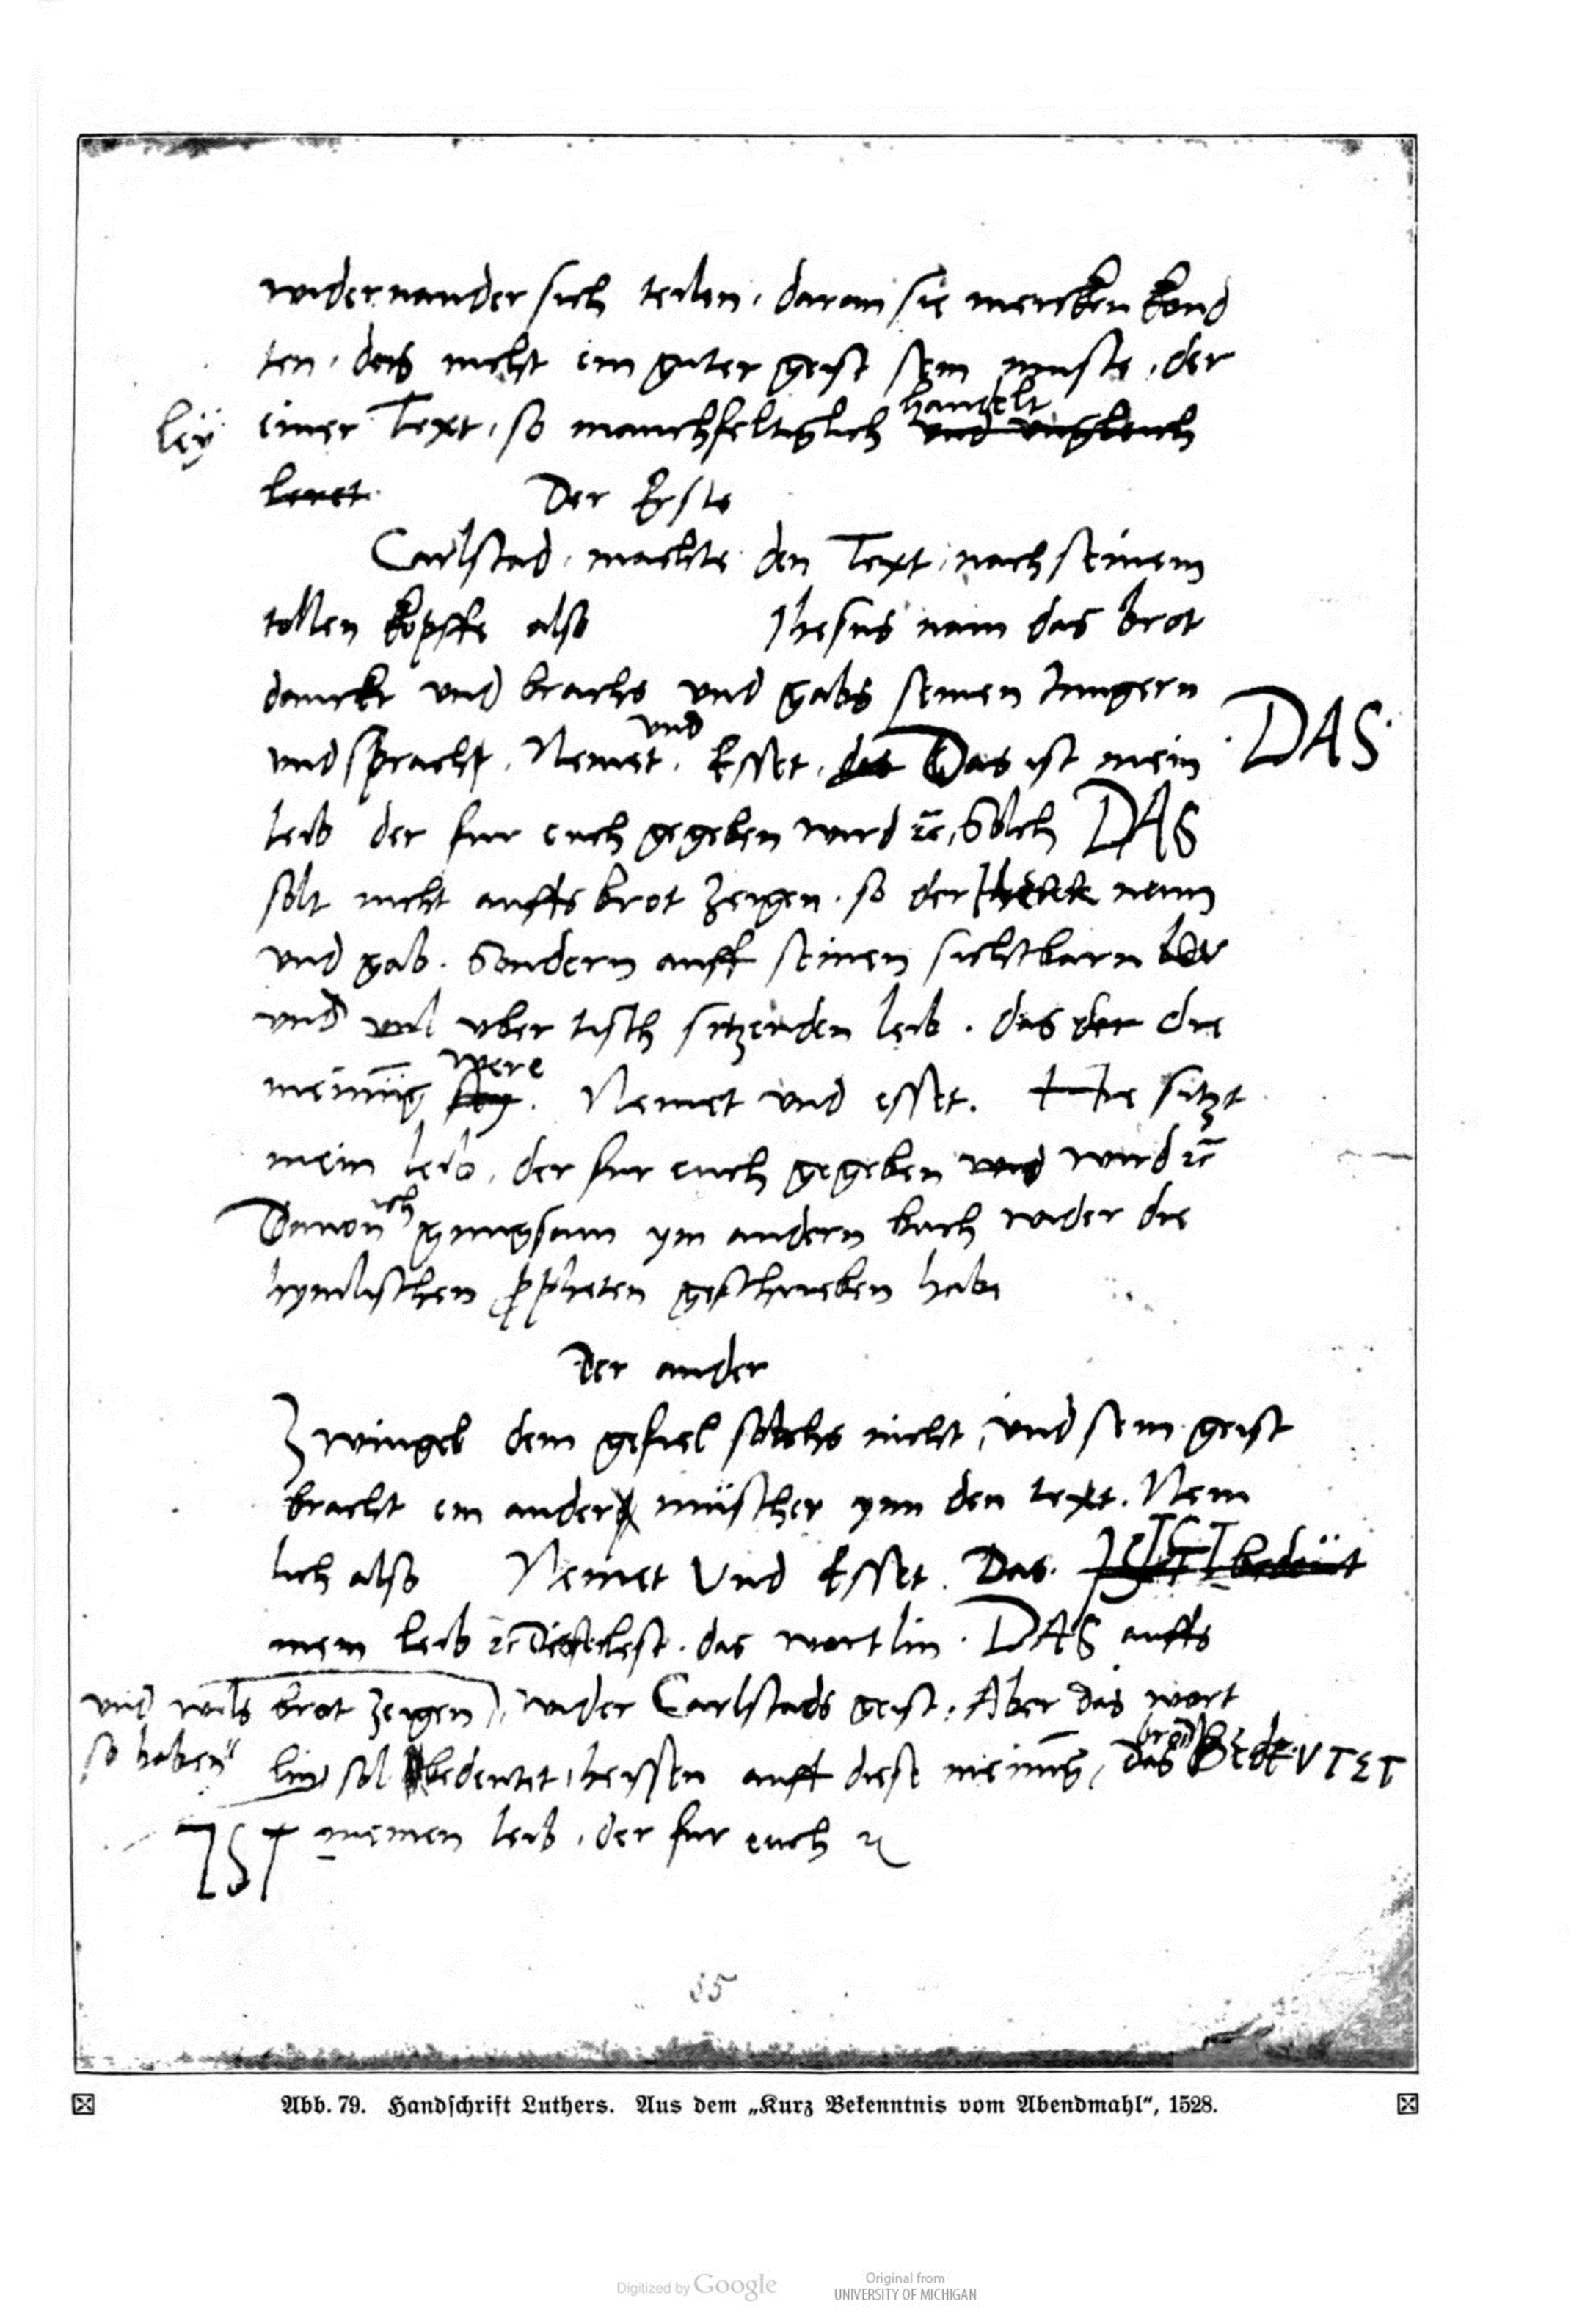 widernander sich teilen, daran sie mercken kond
ten, das nicht ein guter geist sein muste, der
handelt
ley einer Text, so manchfeltiglich und ungleich
leret. Der Erste
Carlstad, machte den Text, nach seinem
tollen kopffe also Jhesus nam das brot
danckt und brachs und gabs seinen Jungern
und
und sprach, Nemet, Esset, das Das ist mein DAS
leib der fur euch gegeben wird ꝛc, Solch DAS
solt nicht auffs brot zeigen, so der nam
und gab. Sondern auff seinen sichtbarn
und uber tisch sitzenden leib. das der die
were
meinūg sey. Nemet und esset. Hie sitzt
mein leib, der fur euch gegeben und wird ꝛc
ich
Davon gnugsam ym andern buch wider die
hymlischen ppheten geschrieben habe
Der ander
Zwingel dem gefiel solchs nicht, und sein geist
bracht ein ander müscher ynn den text. Nem
lich also Nemet Und Esset. Das. IST bedeut
mein leib ꝛc Dieser lest. das wortlin. DAS auffs
und wils brot zeigen, wider Carlstads geist, Aber das wort
so haben lin sol bedeutet, heyssen auff diese meinūg, das brod BEdEVTET
IST meinen leib, der fur euch ꝛc
55
Abb. 79. Handschrift Luthers. Aus dem „Kurz Bekenntnis vom Abendmahl“, 1528.
Digitized by Google
Original from
UNIVERSITY OF MICHIGAN